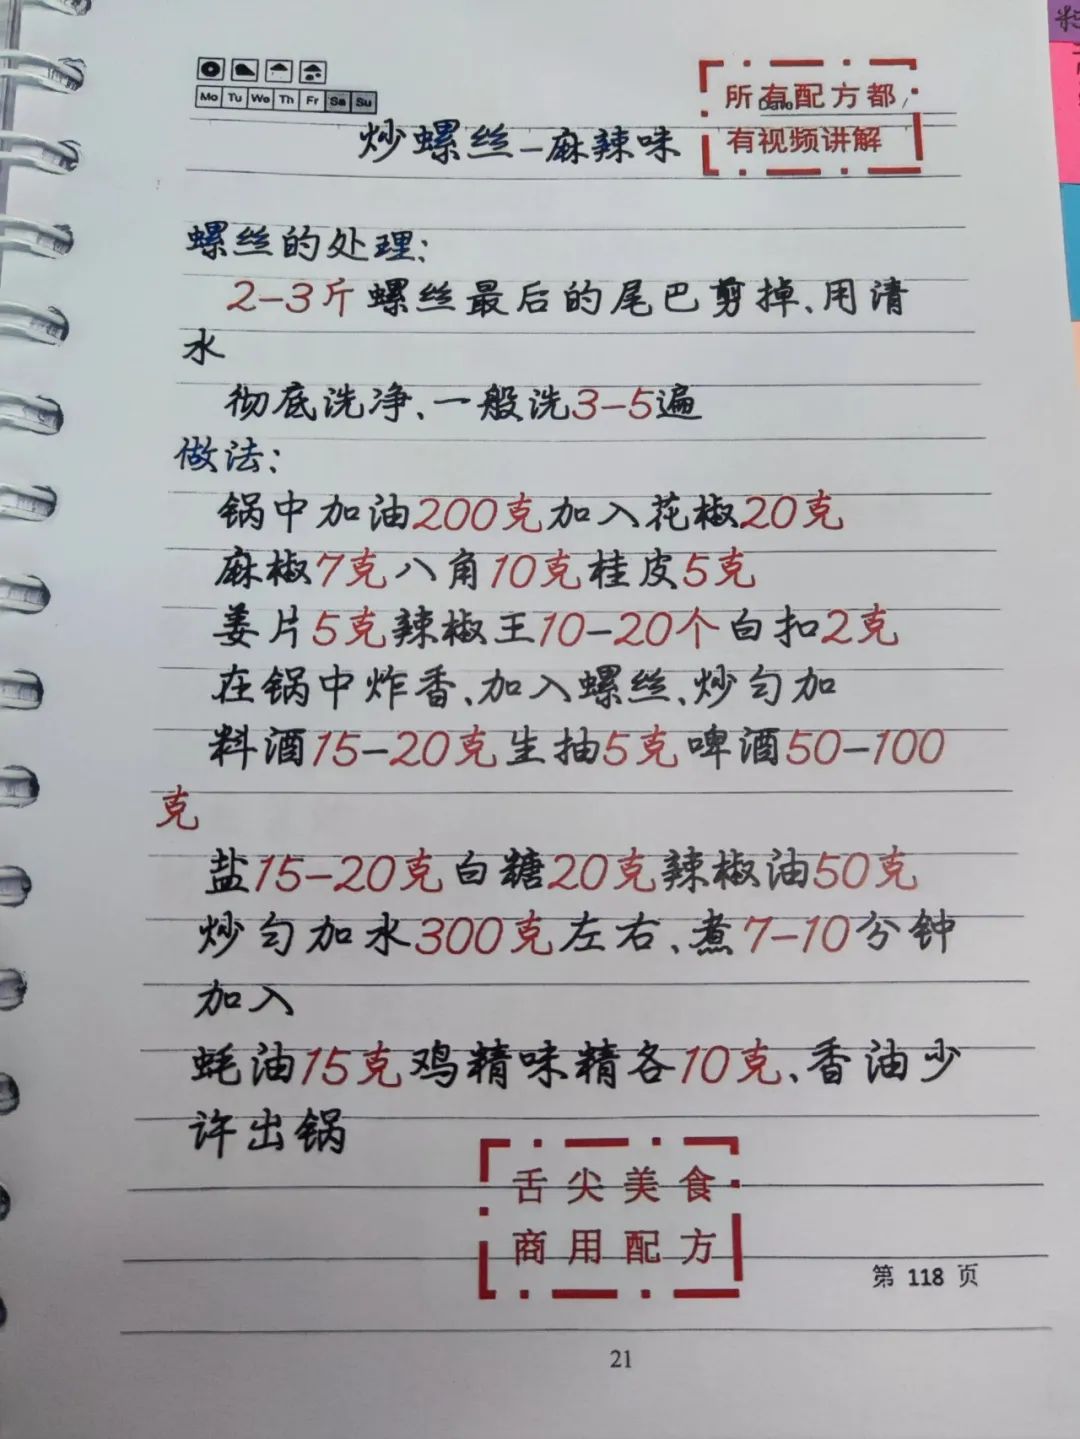 Mo Tu We Th Fr Sa Su
所有配方都
Date /
有视频讲解
炒螺丝-麻辣味
螺丝的处理:
2-3斤螺丝最后的尾巴剪掉、用清
水
彻底洗净、一般洗3-5遍
做法:
锅中加油200克加入花椒20克
麻椒7克八角10克桂皮5克
姜片5克辣椒王10-20个白扣2克
在锅中炸香、加入螺丝、炒匀加
料酒15-20克生抽5克啤酒50-100
克
盐15-20克白糖20克辣椒油50克
炒匀加水300克左右、煮7-10分钟
加入
蚝油15克鸡精味精各10克、香油少
许出锅
舌尖美食
商用配方
第 118 页
21